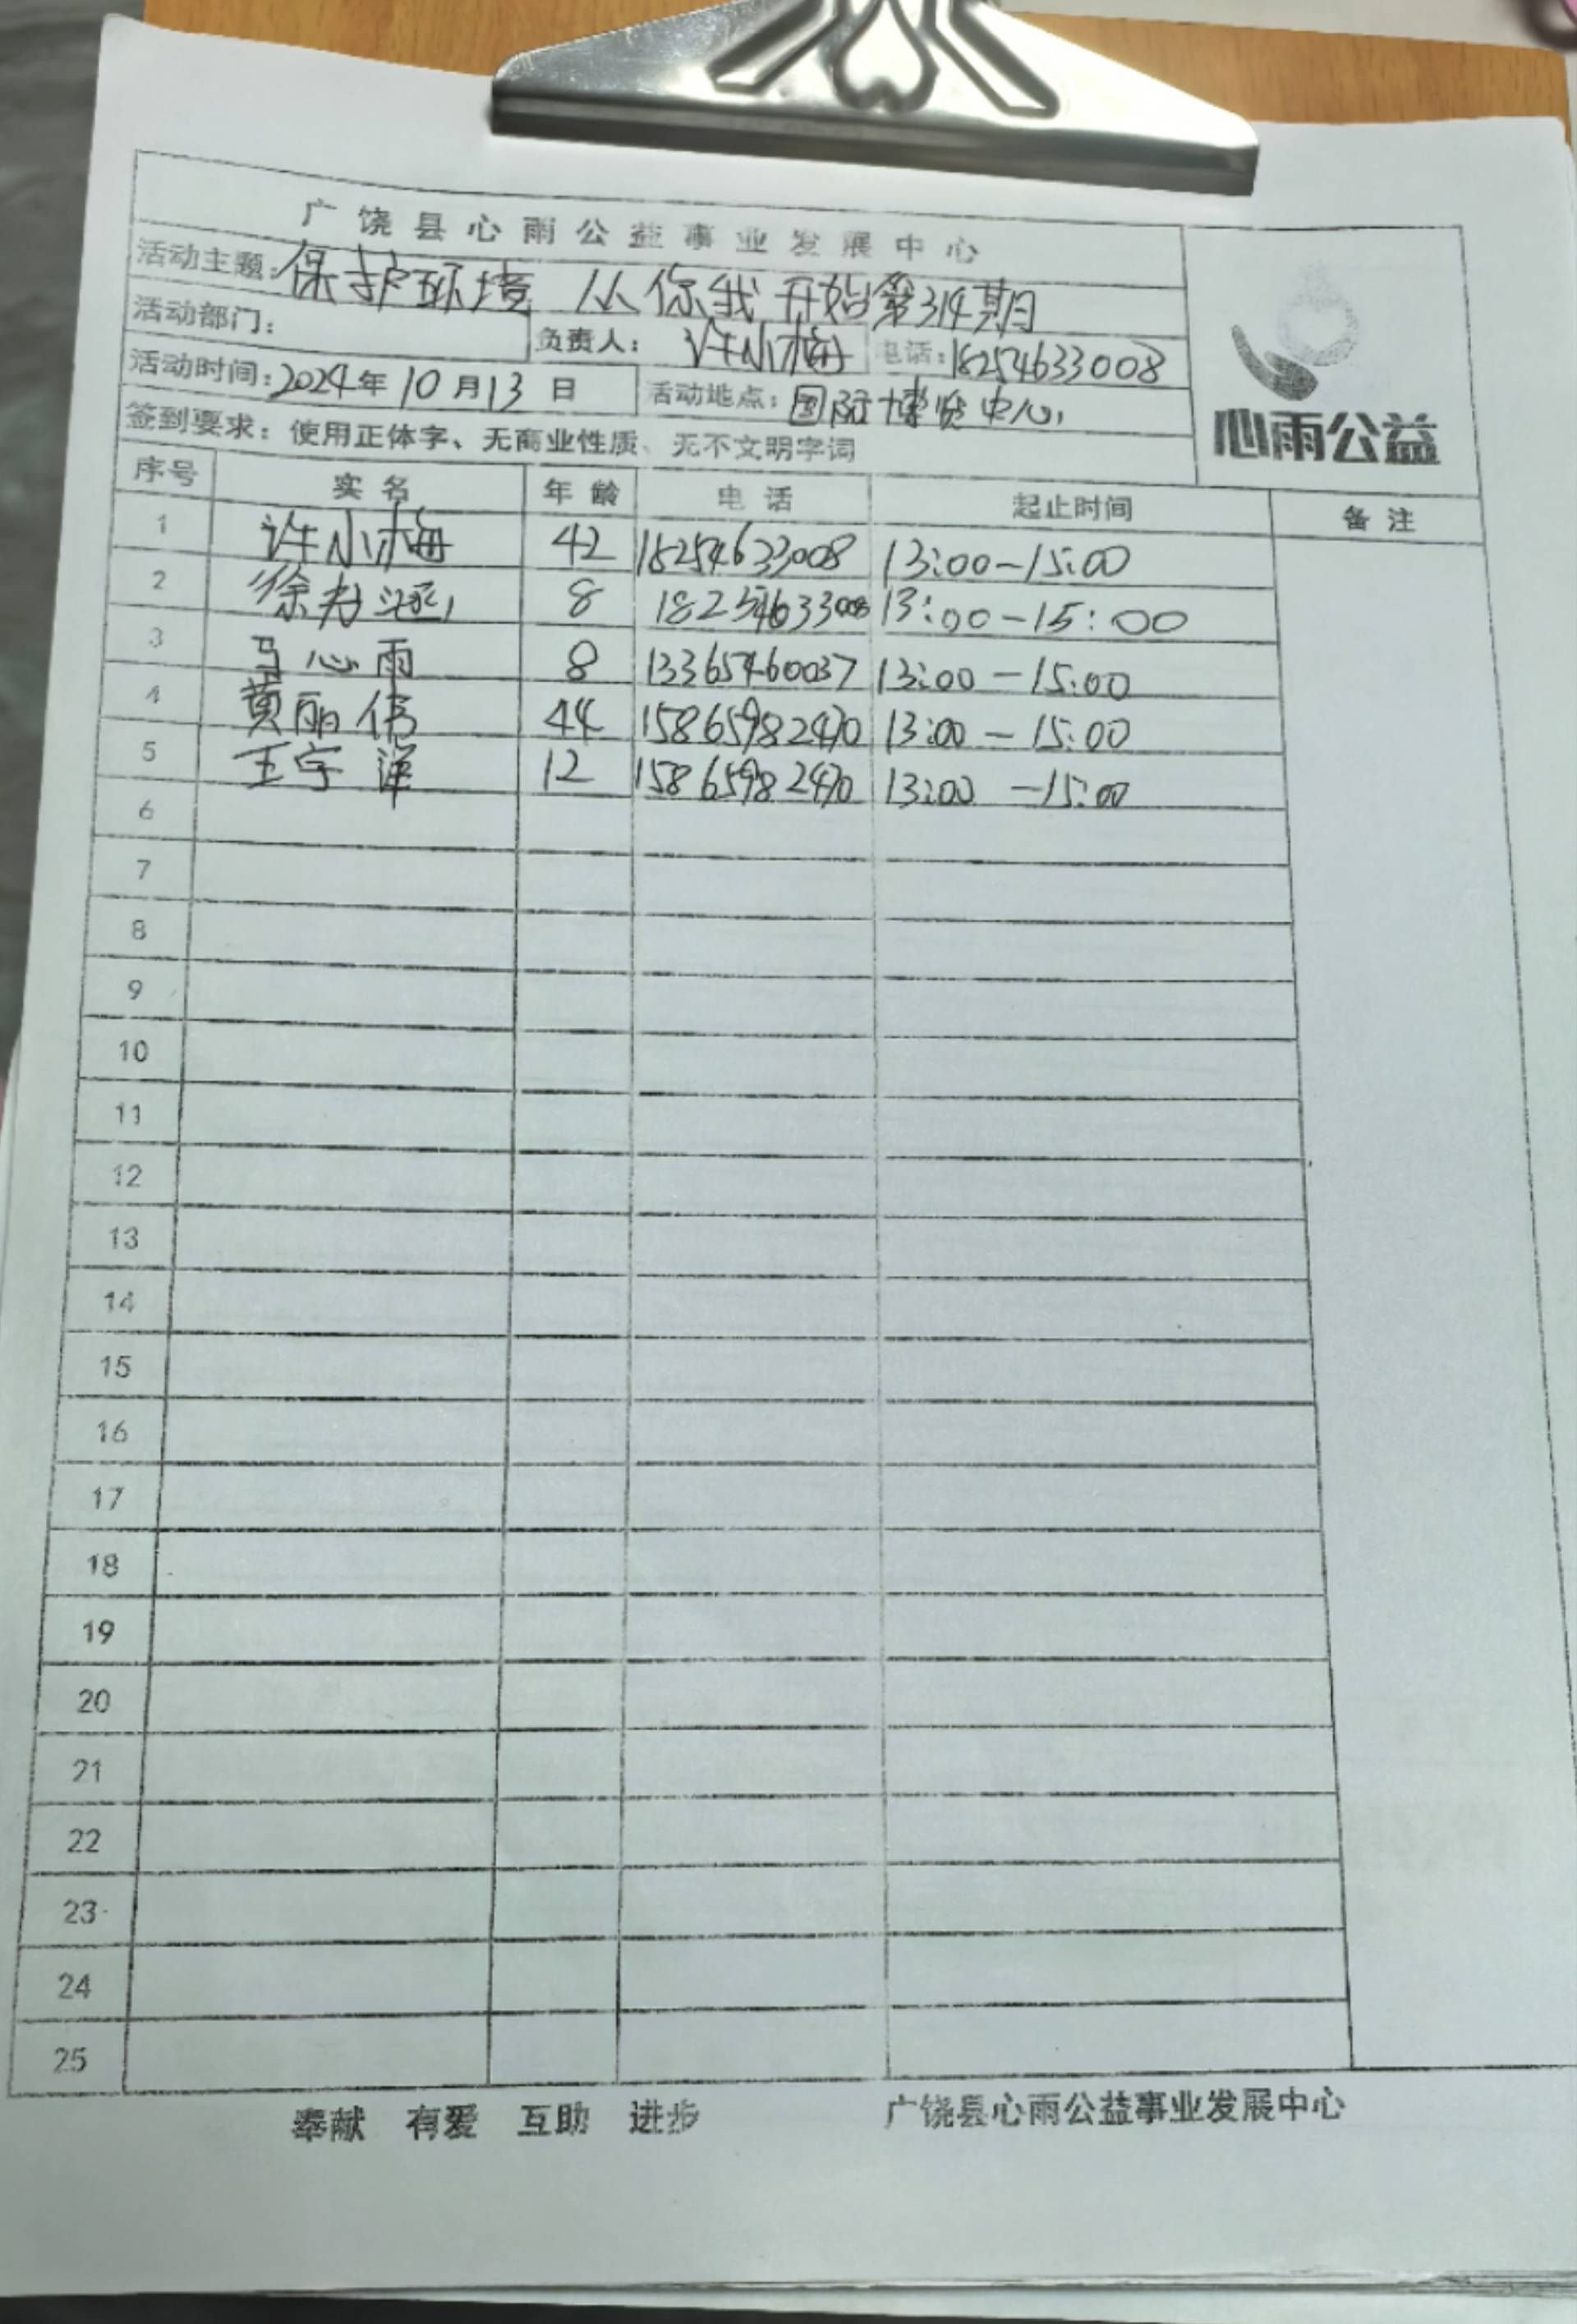 广饶县心雨公益事业发展中心
活动主题:保护环境 从你我开始第314期
活动部门:
负责人: 许小梅 电话:18254633008
活动时间:2024年10月13日 活动地点:国际博览中心
签到要求:使用正体字、无商业性质、无不文明字词
心雨公益
序号 实名 年龄 电话 起止时间 备注
1 许小梅 42 18254633008 13:00-15:00
2 徐 8 18254633008 13:00-15:00
3 马心雨 8 13365460037 13:00-15:00
4 黄丽伟 44 15865982470 13:00-15:00
5 王宇泽 12 15865982470 13:00-15:00
6
7
8
9
10
11
12
13
14
15
16
17
18
19
20
21
22
23
24
25
奉献 有爱 互助 进步 广饶县心雨公益事业发展中心